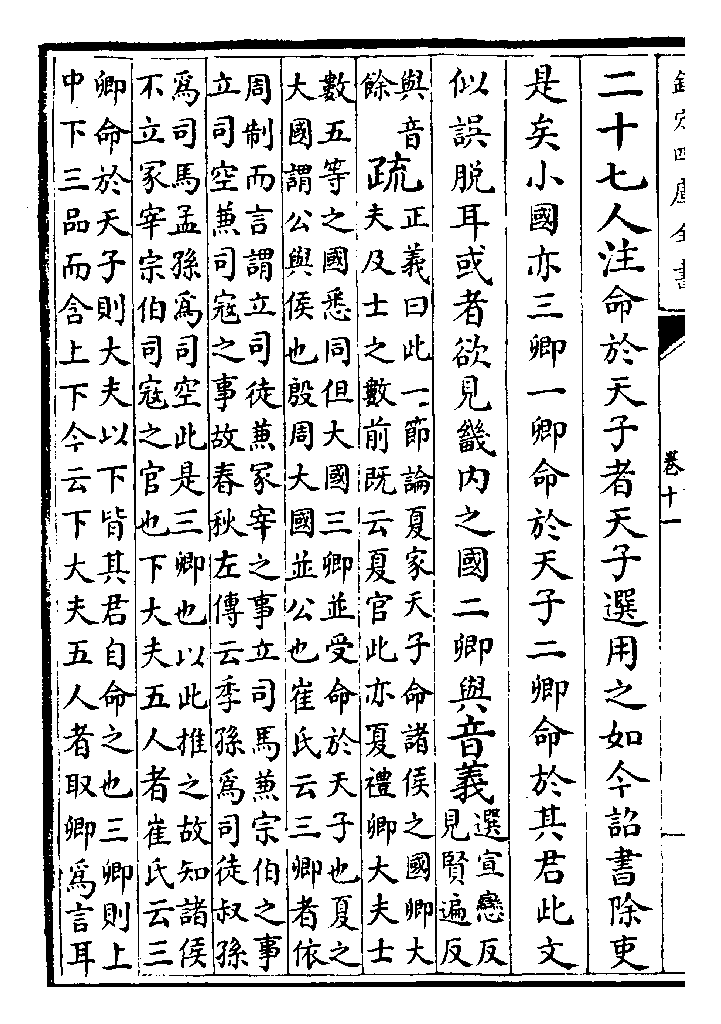 欽定四庫全書
卷十一
二十七人注命於天子者天子選用之如今詔書除吏
是矣小國亦三卿一卿命於天子二卿命於其君此文
似誤脱耳或者欲見畿内之國二卿與音義
選宣戀反
見賢遍反
與音
餘
疏
正義曰此一節論夏家天子命諸侯之國卿大
夫及士之數前既云夏官此亦夏禮卿大夫士
數五等之國悉同但大國三卿並受命於天子也夏之
大國謂公與侯也殷周大國並公也崔氏云三卿者依
周制而言謂立司徒兼冡宰之事立司馬兼宗伯之事
立司空兼司寇之事故春秋左傳云季孫爲司徒叔孫
爲司馬孟孫爲司空此是三卿也以此推之故知諸侯
不立冡宰宗伯司寇之官也下大夫五人者崔氏云三
卿命於天子則大夫以下皆其君自命之也三卿則上
中下三品而含上下今云下大夫五人者取卿爲言耳